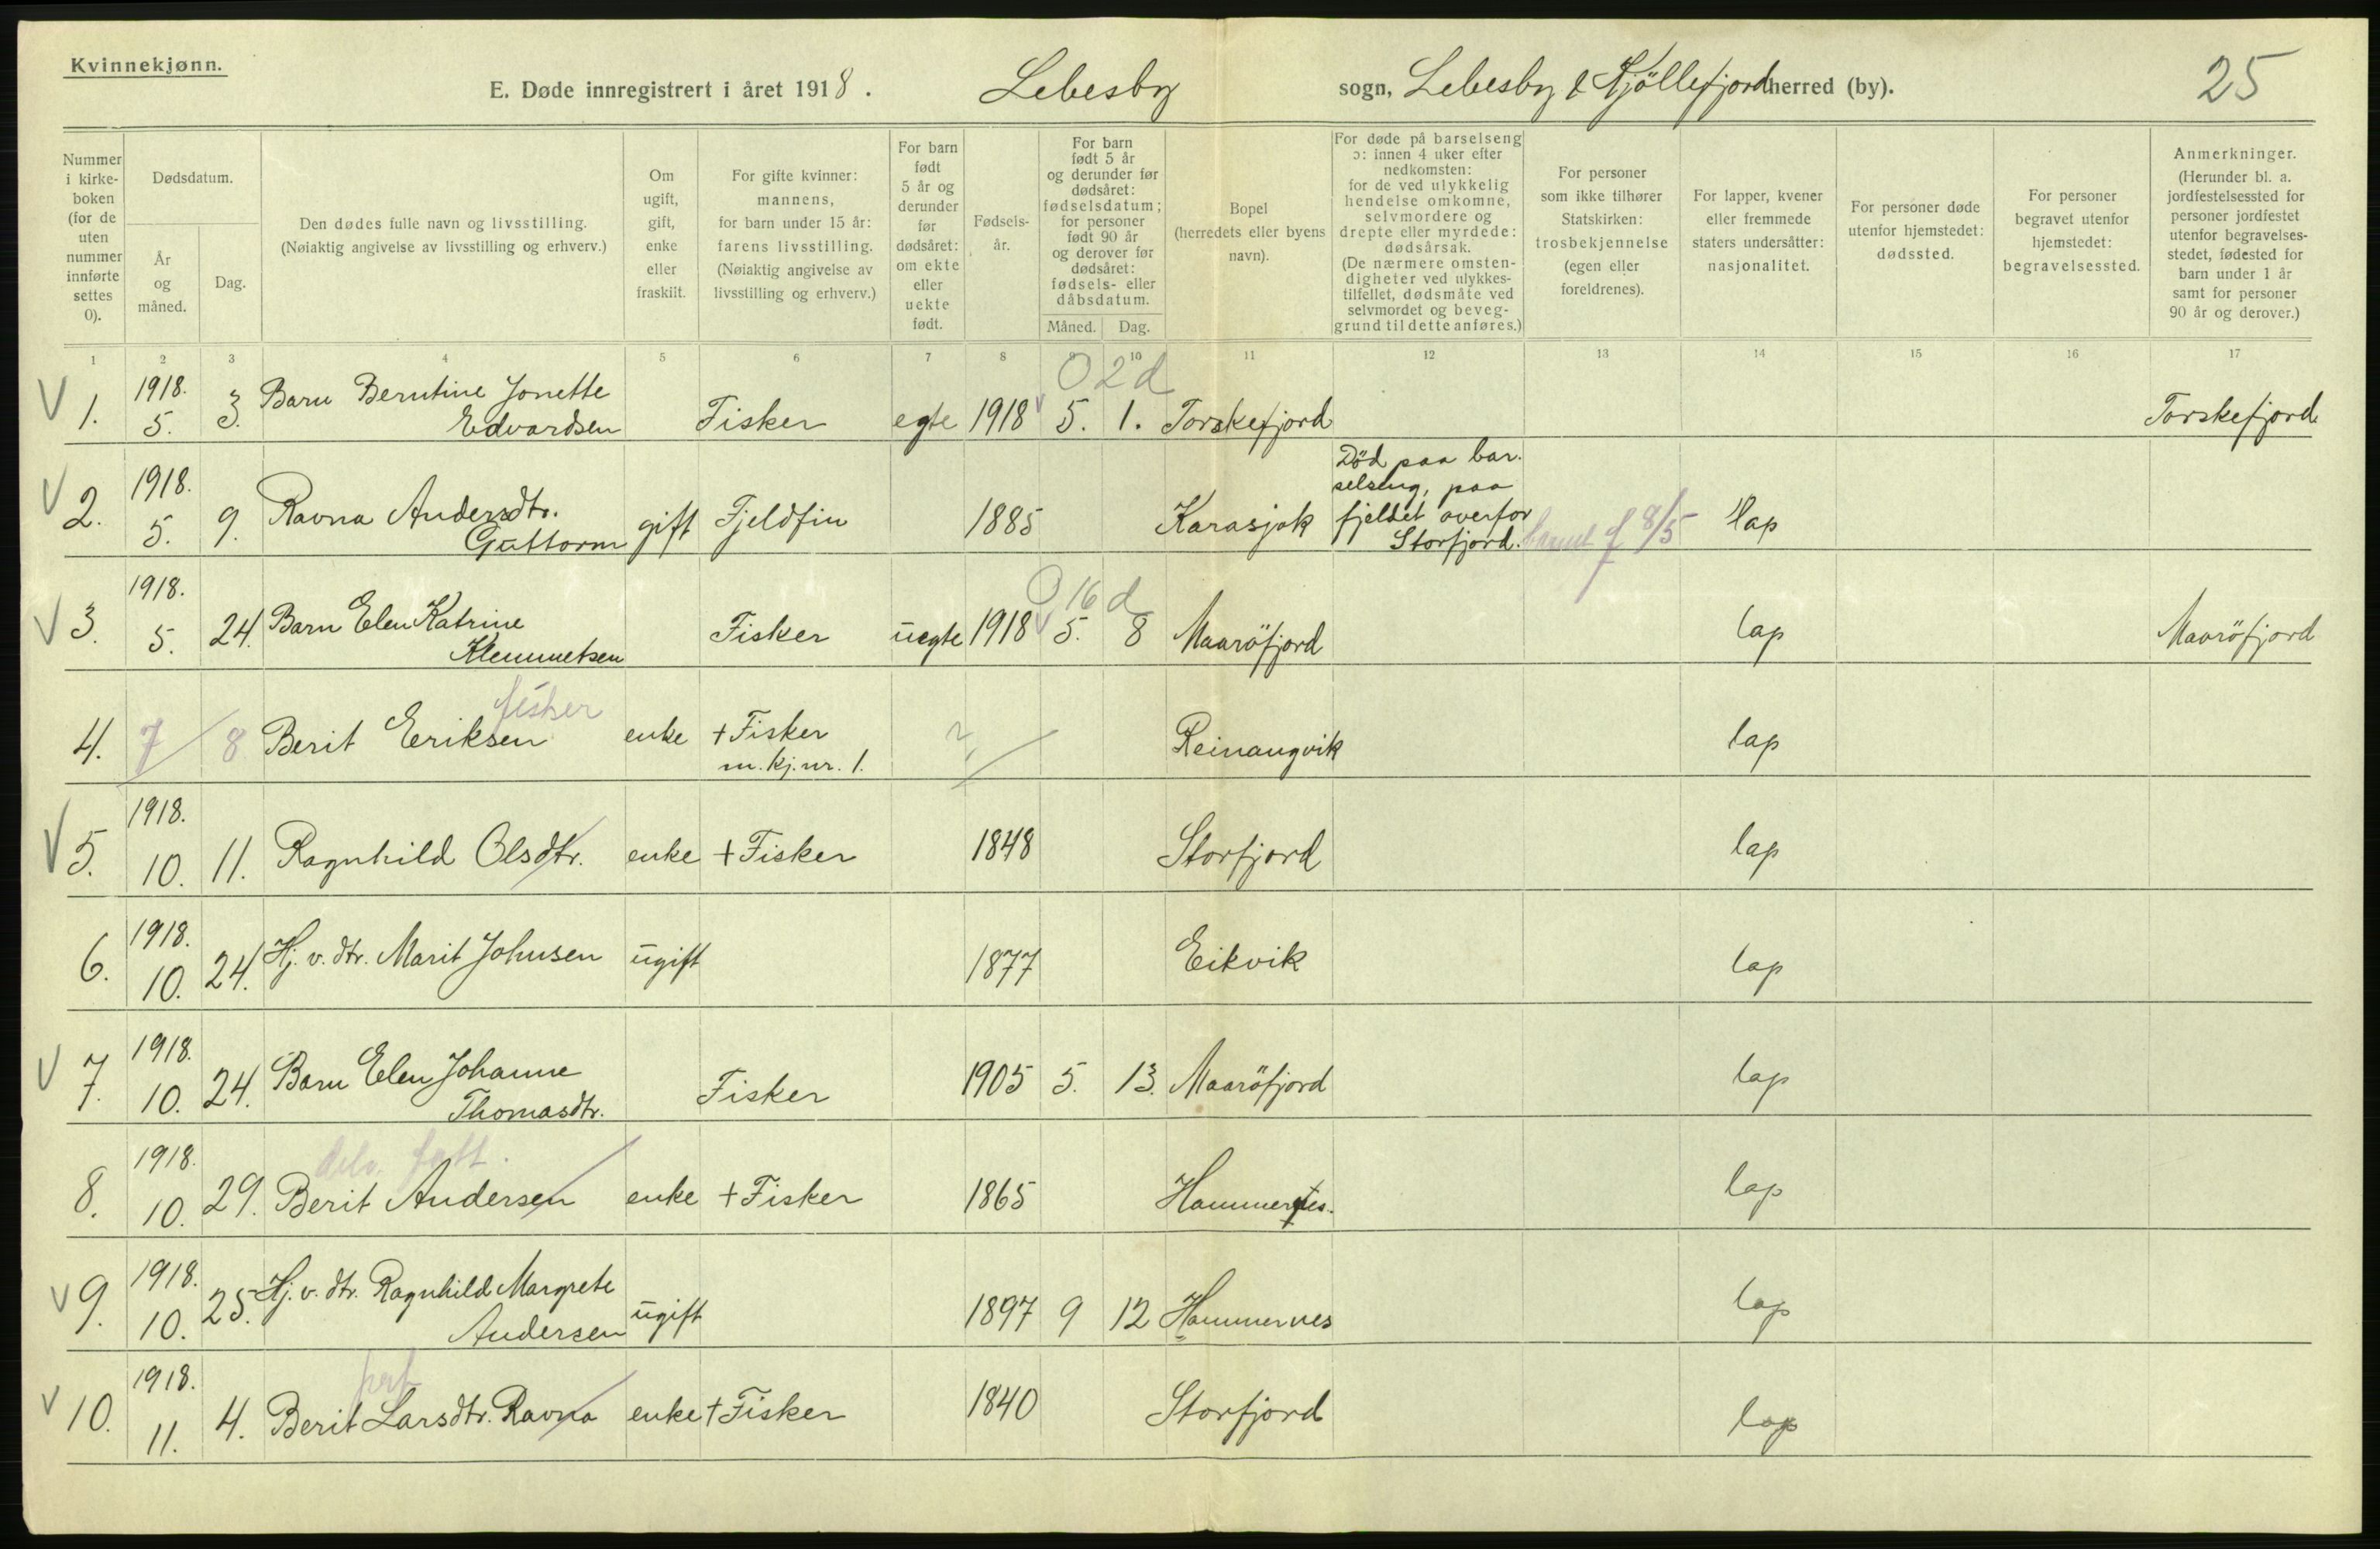 Kvinnekjønn.
E. Døde innregistrert i året 1918. Lebesby sogn, Lebesby & Kjöllefjord herred (by). 25
Nummer i kirke-boken (for de uten nummer innførte settes 0).
Dødsdatum.
År og måned.
Dag.
Den dødes fulle navn og livsstilling.
(Nøiaktig angivelse av livsstilling og erhverv.)
Om ugift, gift, enke eller fraskilt.
For gifte kvinner: mannens, for barn under 15 år: farens livsstilling. (Nøiaktig angivelse av livsstilling og erhverv.)
For barn født 5 år og derunder før dødsåret: om ekte eller uekte født.
Fødsels-år.
For barn født 5 år og derunder før dødsåret: fødselsdatum; for personer født 90 år og derover før dødsåret: fødsels- eller dåbsdatum.
Måned. Dag.
Bopel (herredets eller byens navn).
For døde på barselseng ɔ: innen 4 uker efter nedkomsten: for de ved ulykkelig hendelse omkomne, selvmordere og drepte eller myrdede: dødsårsak. (De nærmere omsten-digheter ved ulykkes-tilfellet, dødsmåte ved selvmordet og beveg-grund til dette anføres.)
For personer som ikke tilhører Statskirken: trosbekjennelse (egen eller foreldrenes).
For lapper, kvener eller fremmede staters undersåtter: nasjonalitet.
For personer døde utenfor hjemstedet: dødssted.
For personer begravet utenfor hjemstedet: begravelsessted.
Anmerkninger. (Herunder bl. a. jordfestelsessted for personer jordfestet utenfor begravelses-stedet, fødested for barn under 1 år samt for personer 90 år og derover.)
1 2 3 4 5 6 7 8 9 10 11 12 13 14 15 16 17
0 2 d
V 1. 1918. 5. 3. Barn Berntine Jonette Edvardsen Fisker egte 1918 V 5. 1. Torskefjord Torskefjord
V 2. 1918. 5. 9. Ravna Andersdtr. Guttorm gift Fjeldfin 1885 Karasjok Död paa bar-selseng, paa fjeldet overfor Storfjord. barnet f 8/5 lap
0 16 d
V 3. 1918. 5. 24. Barn Elen Katrine Klemmetsen Fisker uegte 1918 V 5. 8 Maaröfjord lap Maaröfjord
fisker
4. 7/8 Berit Eriksen enke + Fisker m. kj. nr. 1. ? Reinaugvik lap
V 5. 1918. 10. 11. Ragnhild Olsdtr. enke + Fisker 1848 Storfjord lap
6. 1918. 10. 24. Hj. v. dtr. Marit Johnsen ugift 1877 Eikvik lap
V 7. 1918. 10. 24. Barn Elen Johanne Thomasdtr. Fisker 1905 5. 13. Maaröfjord lap
8. 1918. 10. 29. Berit Andersen enke + Fisker 1865 Hammernes. lap
V 9. 1918. 10. 25. Hj. v. dtr. Ragnhild Margrete Andersen ugift 1897 9 12 Hammernes lap
V 10. 1918. 11. 4. Berit Larsdtr. Ravna enke + Fisker 1840 Storfjord lap